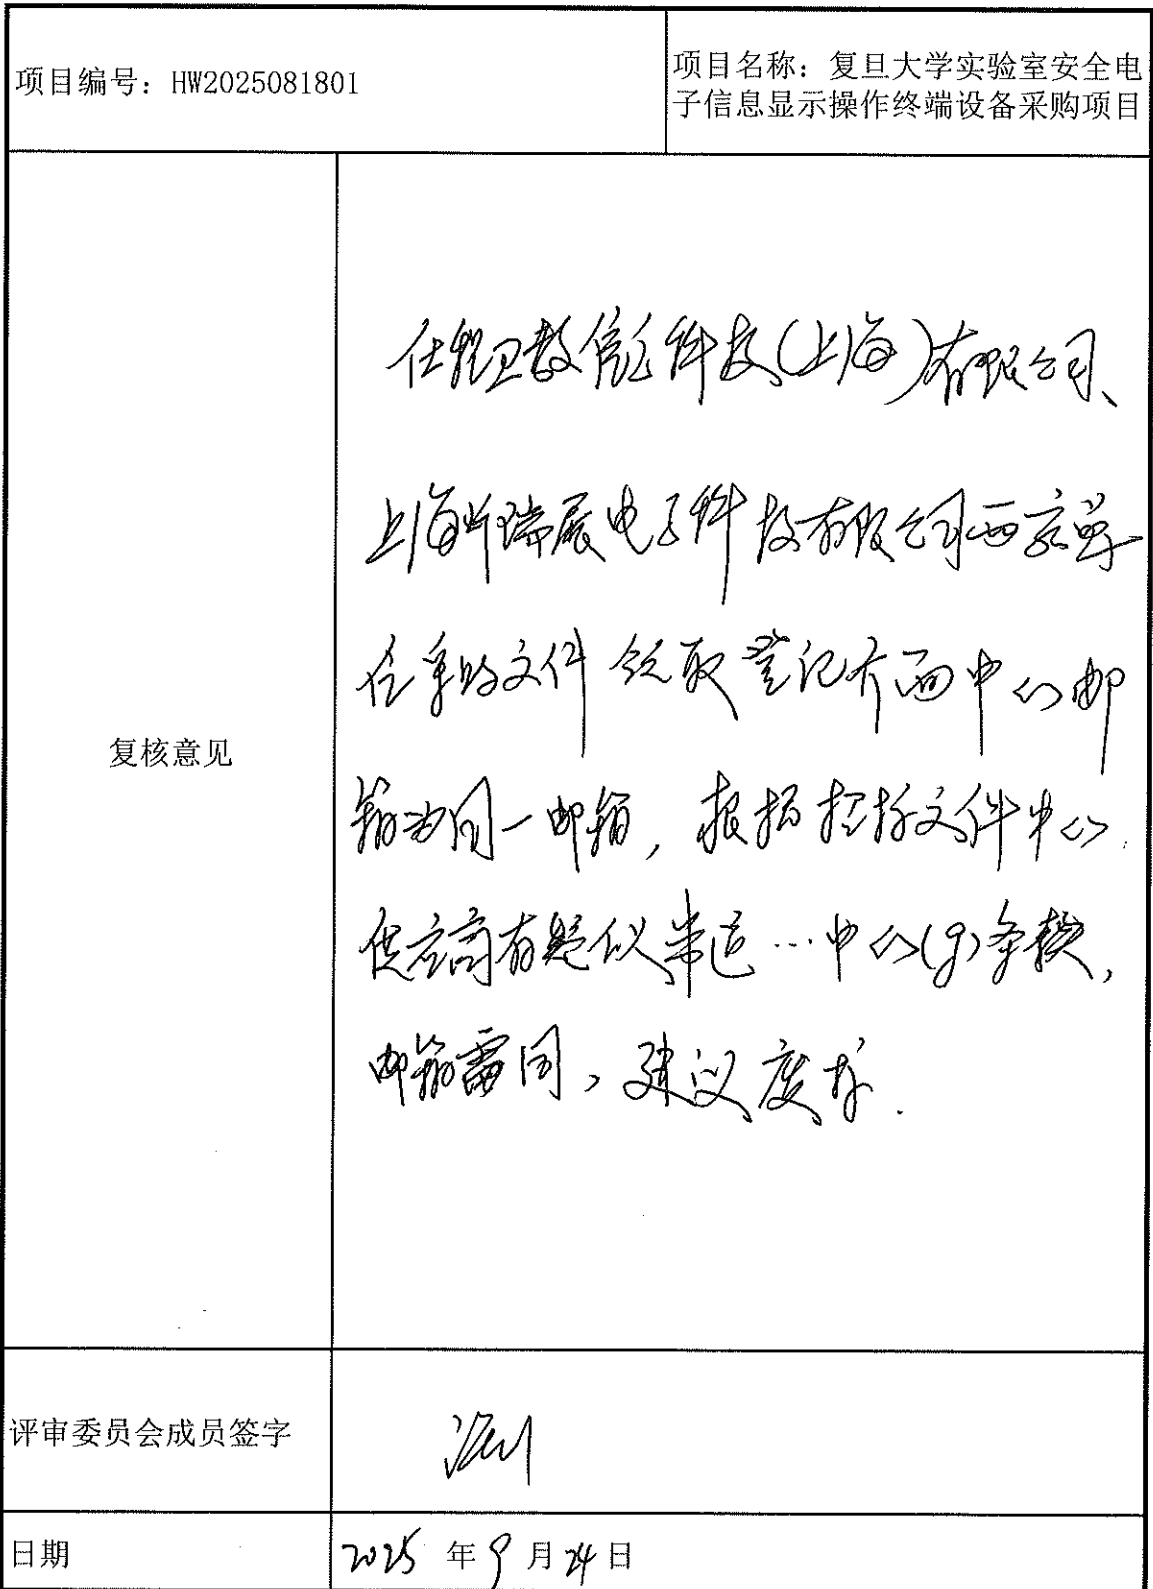 项目编号：HW2025081801
项目名称：复旦大学实验室安全电
子信息显示操作终端设备采购项目
复核意见
数能科技（上海）有限公司、
上海 瑞展电子科技有限公司两家单
位采购文件领取登记介面中的邮
箱为同一邮箱，根据招标文件中的
供应商有疑似串通…中的(9)条款，
邮箱雷同，建议废标.
评审委员会成员签字
日期
2025 年 9 月 24 日